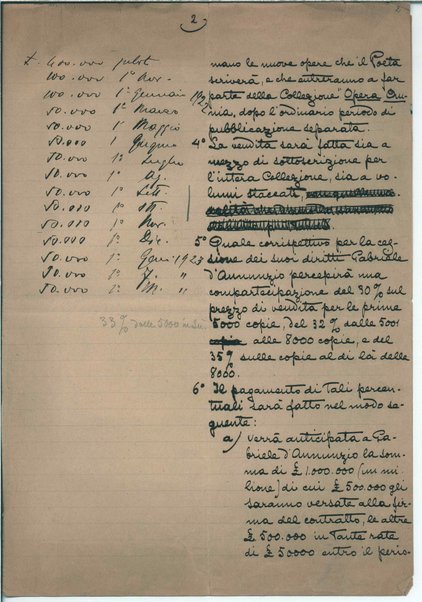 2
£. 400.000 subito
100.000 1° Nov.
100.000 1° Gennaio 1922
50.000 1° Marzo
50.000 1° Maggio
50.000 1° Giugno
50.000 1° Luglio
50.000 1° Ag.
50.000 1° Sett.
50.000 1° Ott.
50.000 1° Nov.
50.000 1° Dic.
50.000 1° Genn 1923
50.000 1° F. "
50.000 1° M. "
33% dalle 5000 in su
mano le nuove opere che il Poeta
scriverà, e che entreranno a far
parte della Collezione "Opera Om-
nia, dopo l'ordinario periodo di
pubblicazione separata.
4° La vendita sarà fatta sia a
mezzo di sottoscrizione per
l'intera Collezione, sia a vo-
lumi staccati,
5° Quale corrispettivo per la ces-
sione dei suoi diritti Gabriele
d'Annunzio percepirà una
compartecipazione del 30% sul
prezzo di vendita per le prime
5000 copie, del 32% dalle 5001
copie alle 8000 copie, e del
35% sulle copie al di là delle
8000.
6° Il pagamento di tali percen-
tuali sarà fatto nel modo se-
guente:
a) verrà anticipata a Ga-
briele d'Annunzio la som-
ma di £ 1.000.000 (un mi-
lione) di cui £ 500.000 gli
saranno versate alla fir-
ma del contratto, le altre
£ 500.000 in tante rate
di £ 50000 entro il perio-